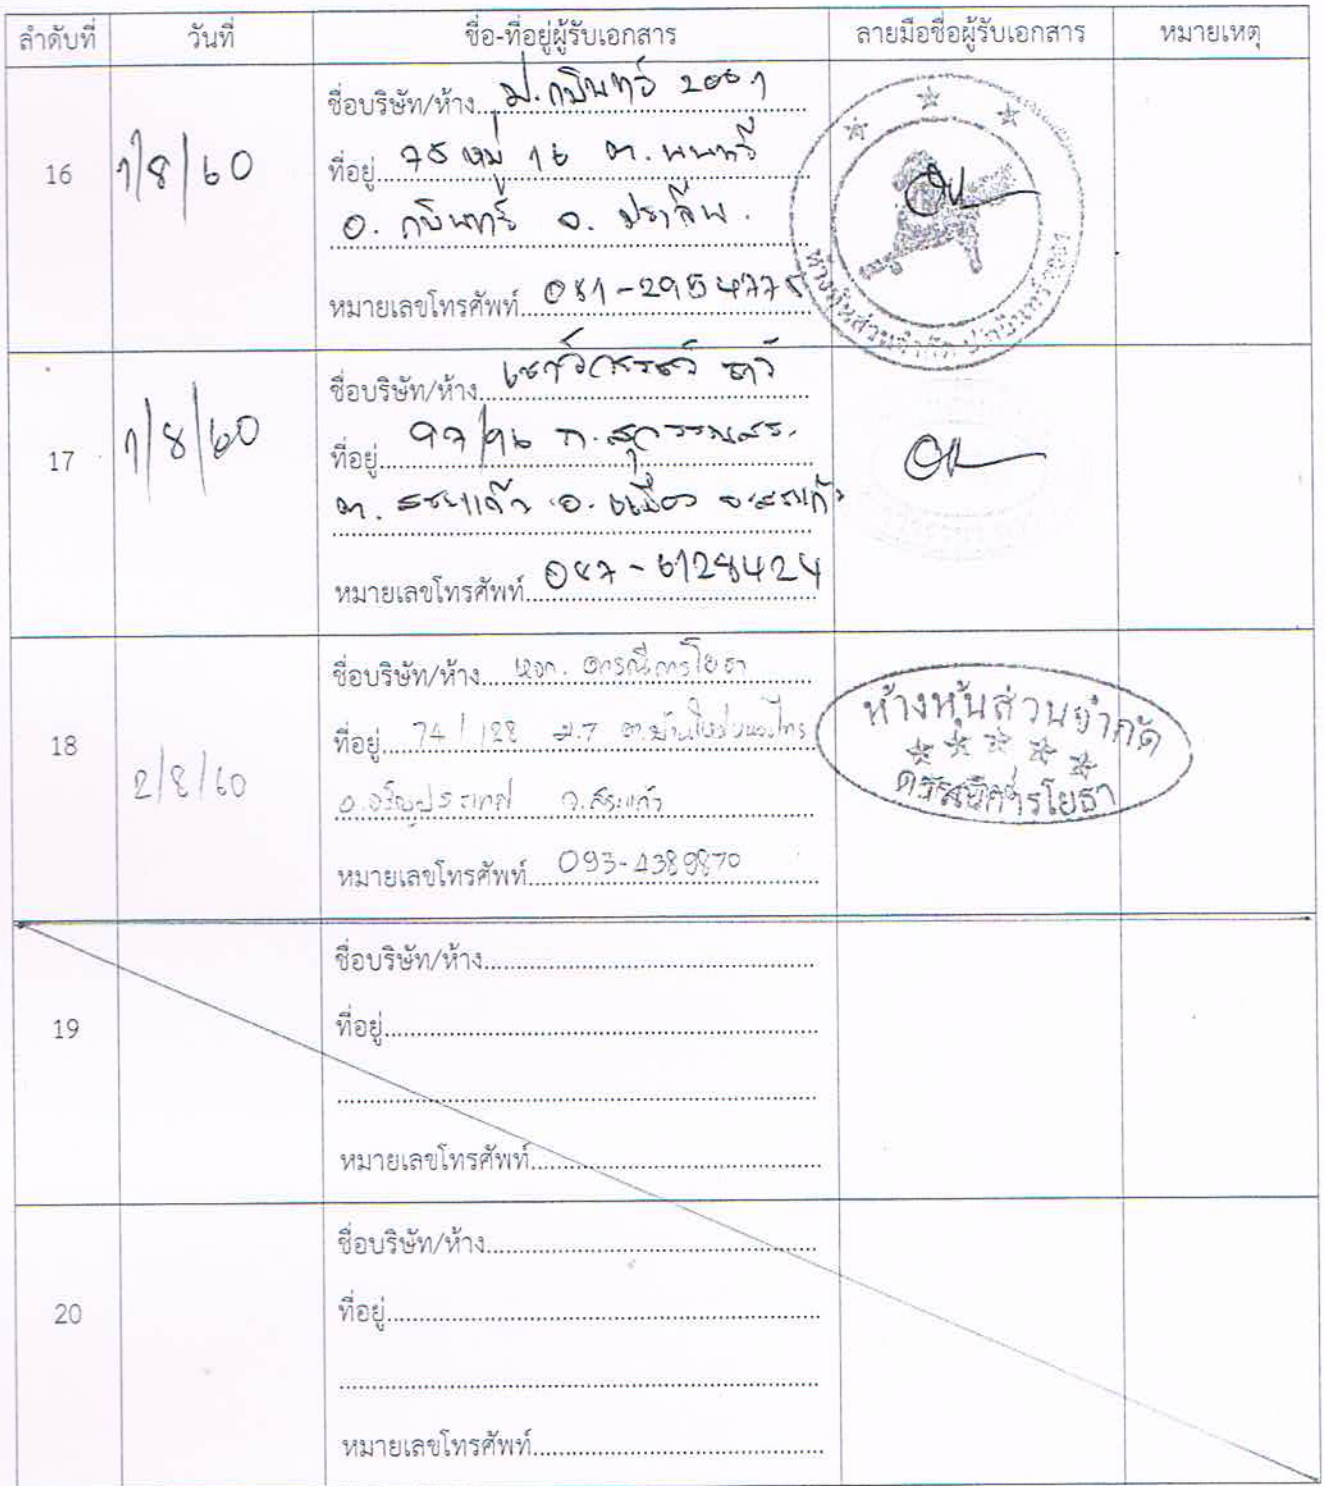 ลำดับที่ วันที่ ชื่อ-ที่อยู่ผู้รับเอกสาร ลายมือชื่อผู้รับเอกสาร หมายเหตุ
16 1/8/60
ชื่อบริษัท/ห้าง ป.กบินทร์ 2001
ที่อยู่ 75 หมู่ 16 ต.
อ. กบินทร์ จ. ปราจีน.
หมายเลขโทรศัพท์ 081-2954775
ห้างหุ้นส่วนจำกัด ป.กบินทร์ 2001
17 1/8/60
ชื่อบริษัท/ห้าง
ที่อยู่ 97/96 ถ.สุวรรณศร.
ต. สระแก้ว อ. เมือง จ.สระแก้ว
หมายเลขโทรศัพท์ 087-6128424
18 2/8/60
ชื่อบริษัท/ห้าง หจก. ดารณีการโยธา
ที่อยู่ 74/128 ม.7 ต.บ้านใหม่หนองไทร
อ.อรัญประเทศ จ.สระแก้ว
หมายเลขโทรศัพท์ 093-4389870
ห้างหุ้นส่วนจำกัด
ดารณีการโยธา
19
ชื่อบริษัท/ห้าง
ที่อยู่
หมายเลขโทรศัพท์
20
ชื่อบริษัท/ห้าง
ที่อยู่
หมายเลขโทรศัพท์